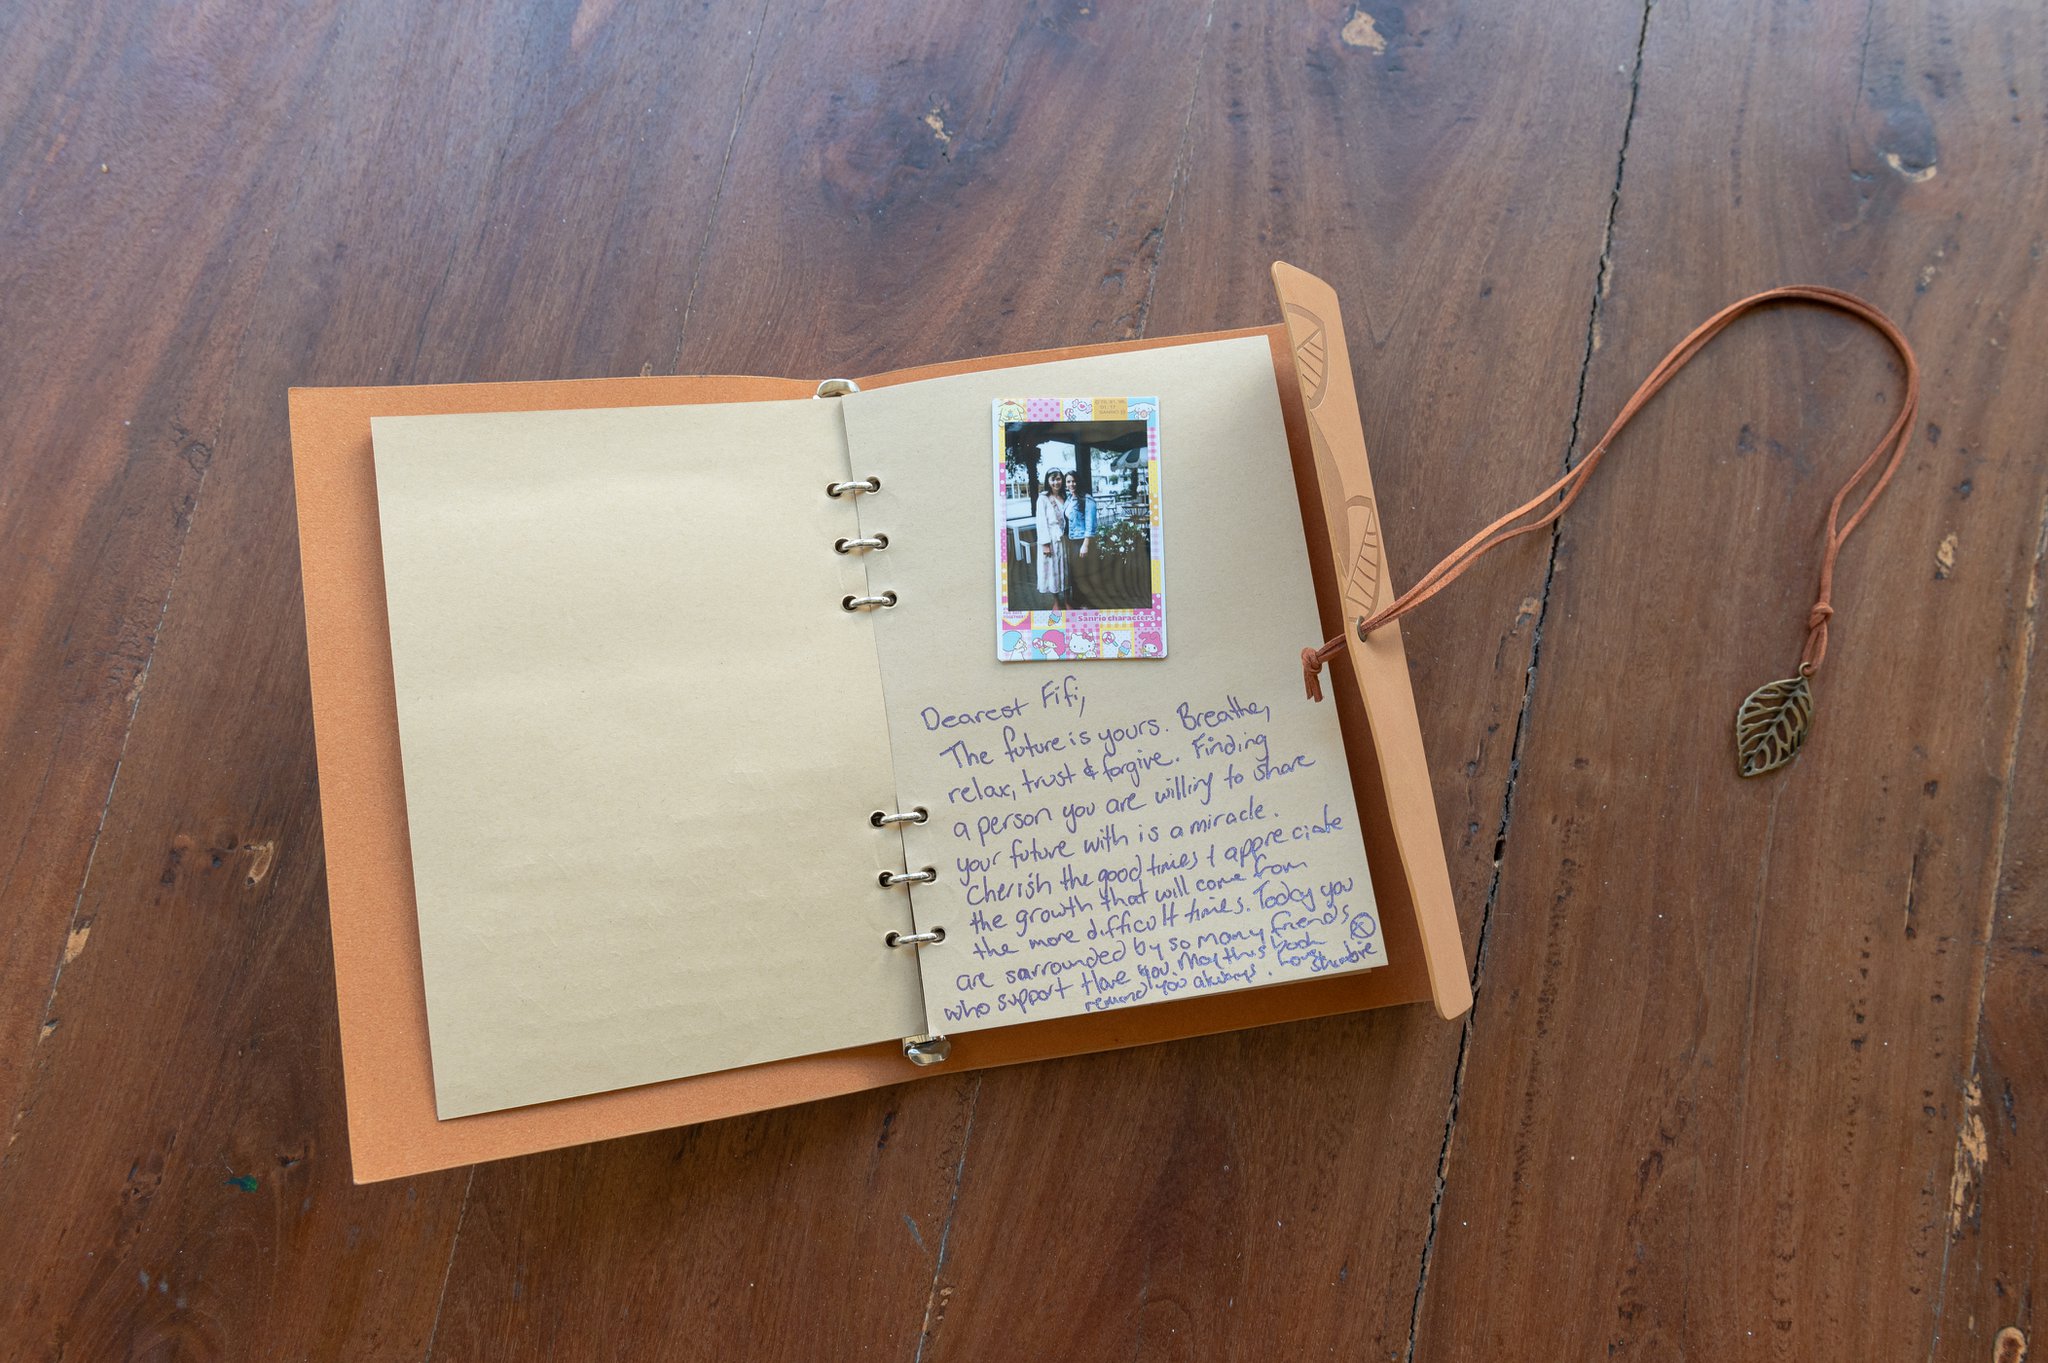 Sanrio characters
Dearest Fifi,
The future is yours. Breathe,
relax, trust & forgive. Finding
a person you are willing to share
your future with is a miracle.
Cherish the good times & appreciate
the growth that will come from
the more difficult times. Today you
are surrounded by so many friends
who support & love you. May this book
remind you always. Love,